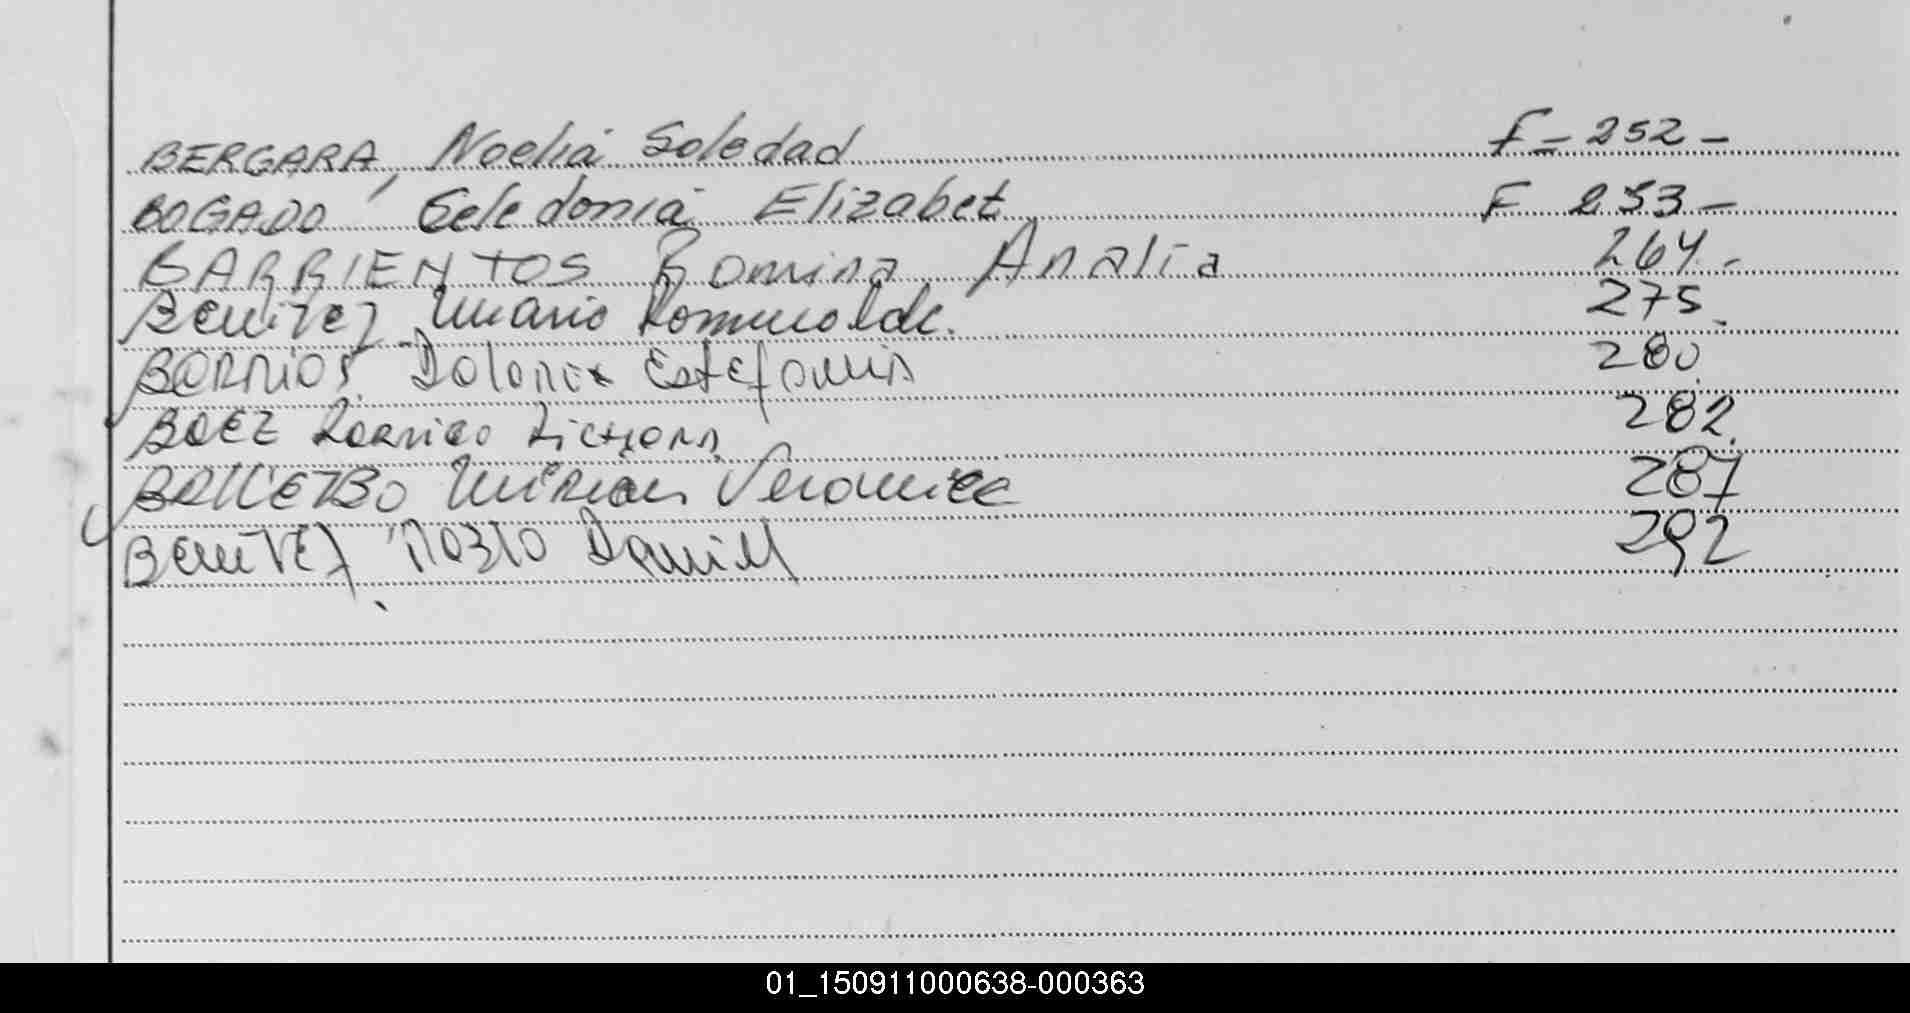 BERGARA, Noelia Soledad F - 252 -
BOGADO Celedonia Elizabet F 253 -
BARRIENTOS Romina Analia 264. -
Benitez Mario Romualdo. 275.
BARRIOS Dolores Estefania 280.
BAEZ Rodrigo 282.
Mirian Veronica 287
Benitez Pablo Daniel 292
01_150911000638-000363